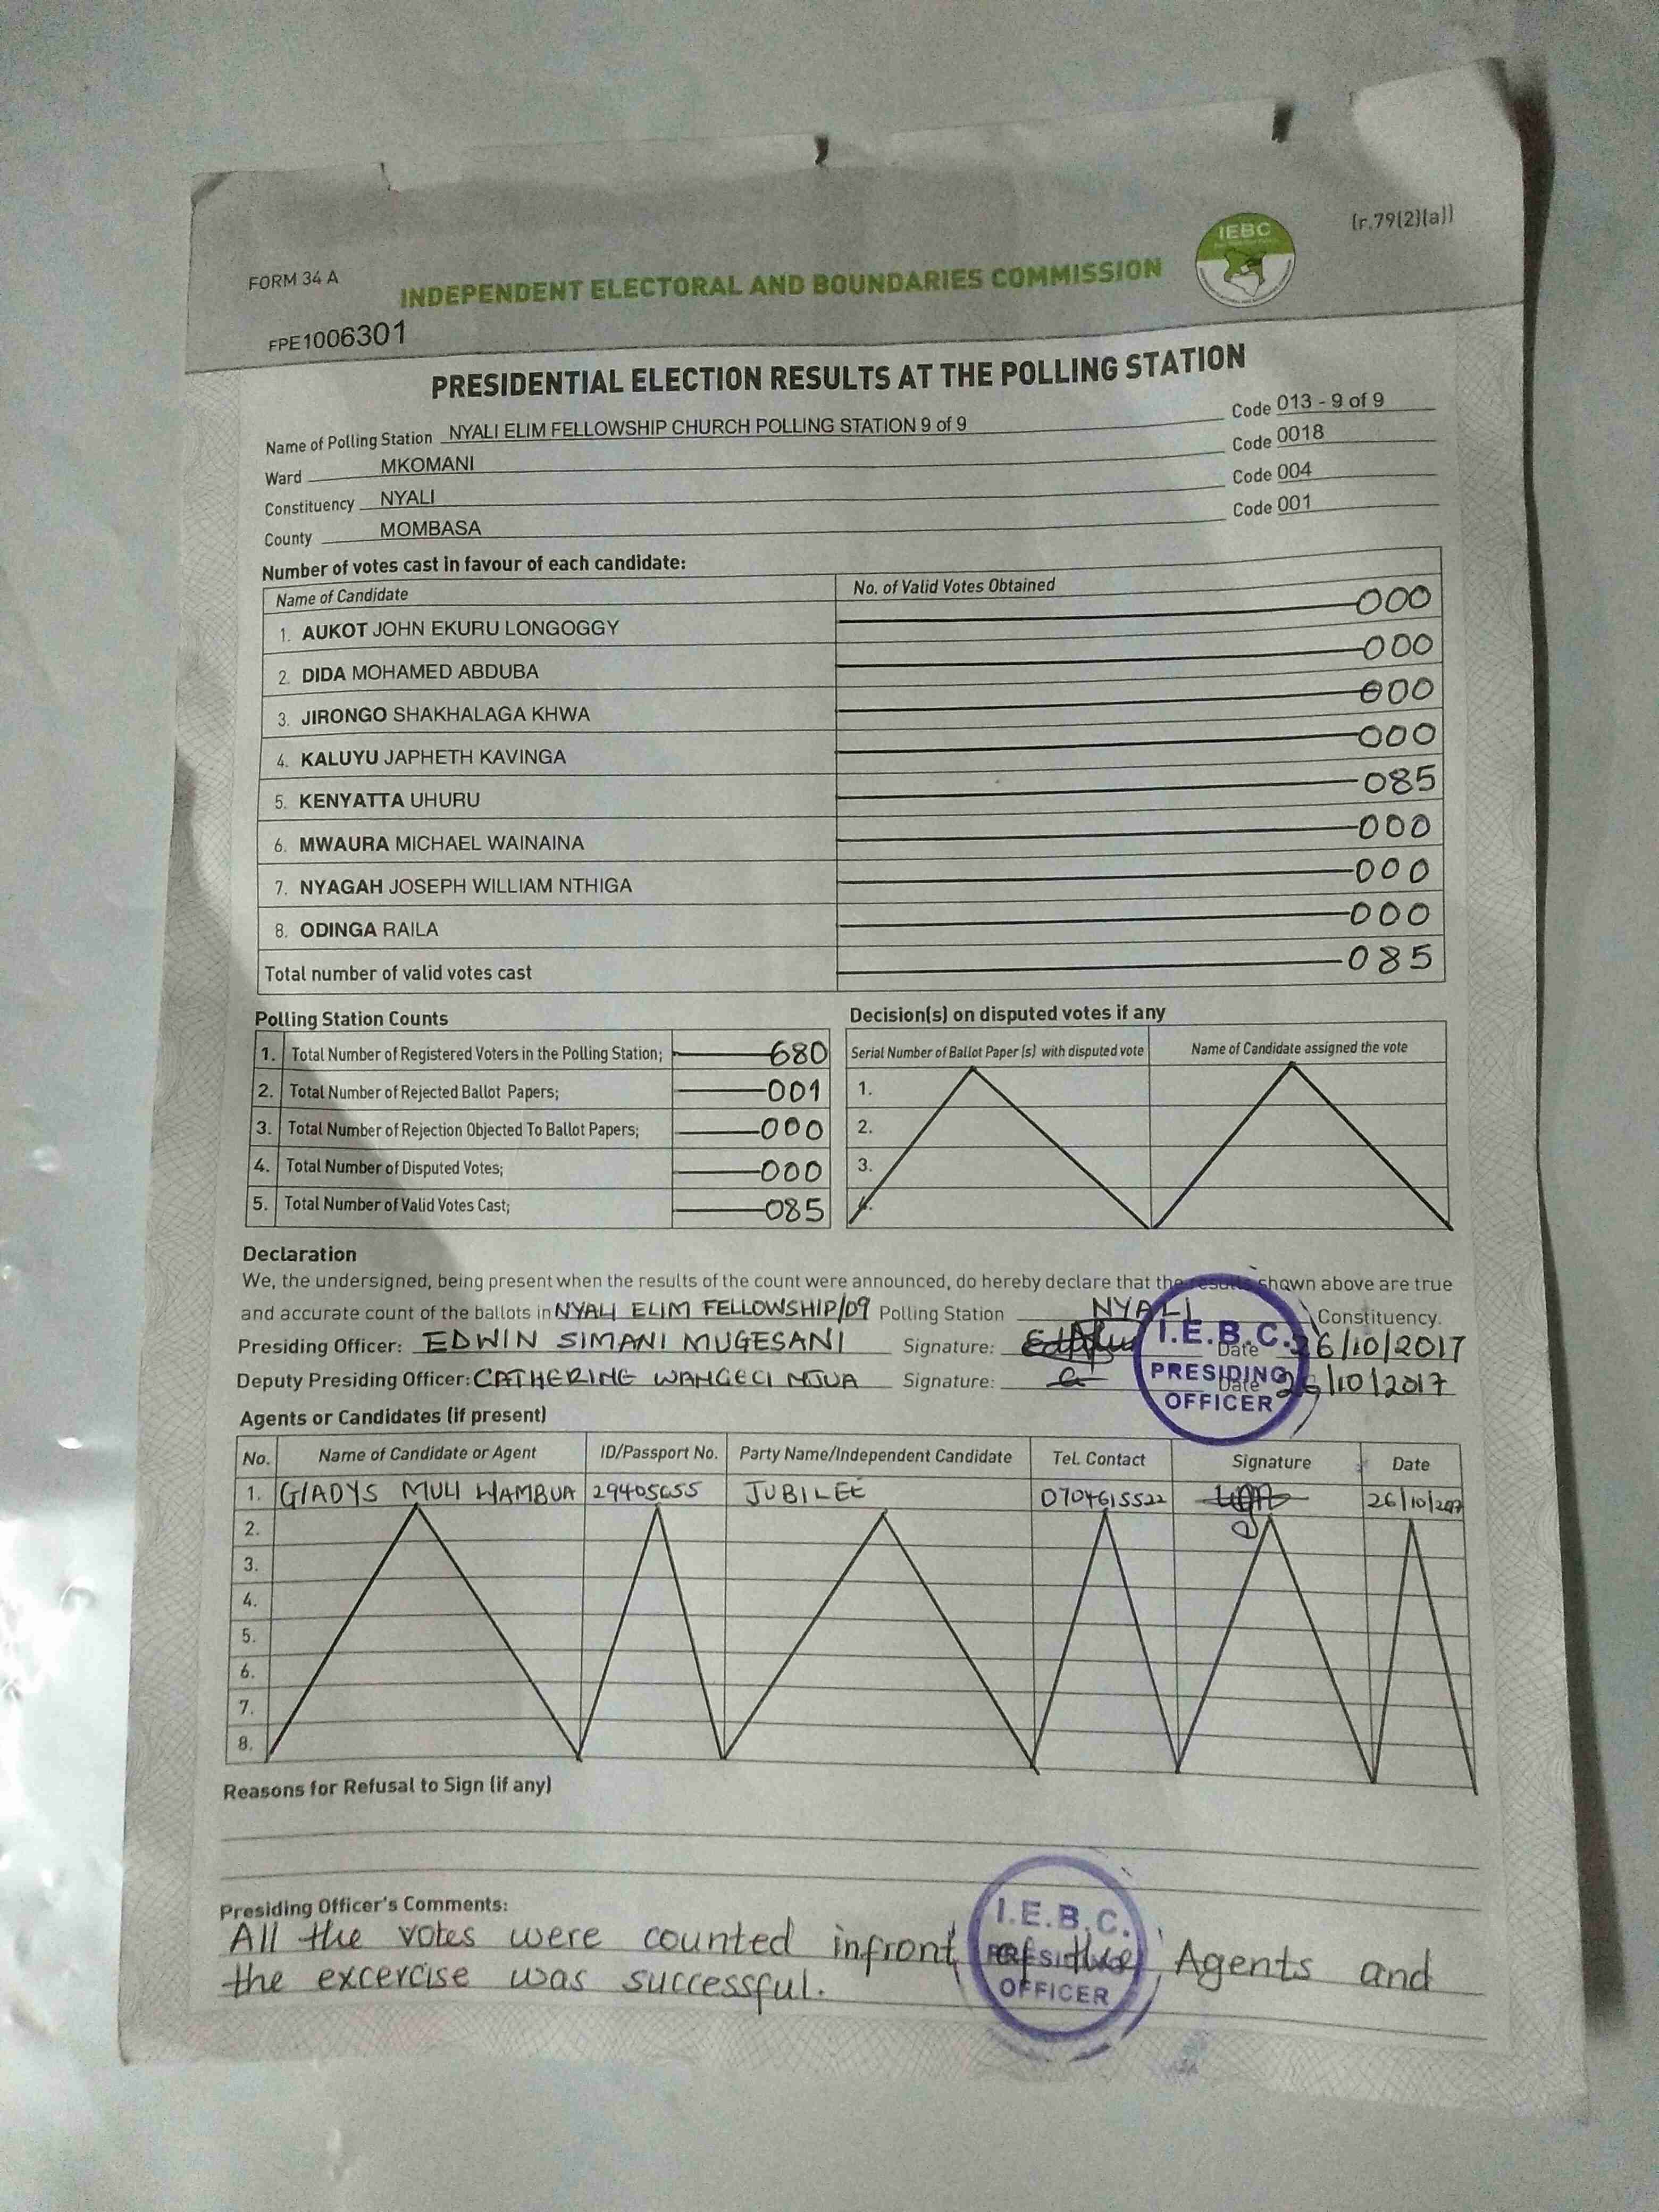 (r.79(2)(a))
IEBC
FORM 34 A
INDEPENDENT ELECTORAL AND BOUNDARIES COMMISSION
FPE1006301
PRESIDENTIAL ELECTION RESULTS AT THE POLLING STATION
Name of Polling Station NYALI ELIM FELLOWSHIP CHURCH POLLING STATION 9 of 9 Code 013 - 9 of 9
Ward MKOMANI Code 0018
Constituency NYALI Code 004
County MOMBASA Code 001
Number of votes cast in favour of each candidate:
Name of Candidate No. of Valid Votes Obtained
1. AUKOT JOHN EKURU LONGOGGY 000
2. DIDA MOHAMED ABDUBA 000
3. JIRONGO SHAKHALAGA KHWA 000
4. KALUYU JAPHETH KAVINGA 000
5. KENYATTA UHURU 085
6. MWAURA MICHAEL WAINAINA 000
7. NYAGAH JOSEPH WILLIAM NTHIGA 000
8. ODINGA RAILA 000
Total number of valid votes cast 085
Polling Station Counts
1. Total Number of Registered Voters in the Polling Station; 680
2. Total Number of Rejected Ballot Papers; 001
3. Total Number of Rejection Objected To Ballot Papers; 000
4. Total Number of Disputed Votes; 000
5. Total Number of Valid Votes Cast; 085
Decision(s) on disputed votes if any
Serial Number of Ballot Paper (s) with disputed vote Name of Candidate assigned the vote
1.
2.
3.
4.
Declaration
We, the undersigned, being present when the results of the count were announced, do hereby declare that the results shown above are true
and accurate count of the ballots in NYALI ELIM FELLOWSHIP/09 Polling Station NYALI Constituency.
Presiding Officer: EDWIN SIMANI MUGESANI Signature: Date 26/10/2017
Deputy Presiding Officer: CATHERINE WANGECI NJUA Signature: Date 26/10/2017
I.E.B.C.
PRESIDING
OFFICER
Agents or Candidates (if present)
No. Name of Candidate or Agent ID/Passport No. Party Name/Independent Candidate Tel. Contact Signature Date
1. GLADYS MULI WAMBUA 29405655 JUBILEE 0704615522 26/10/2017
2.
3.
4.
5.
6.
7.
8.
Reasons for Refusal to Sign (if any)
Presiding Officer's Comments:
All the votes were counted infront of the Agents and
the excercise was successful.
I.E.B.C.
PRESIDING
OFFICER